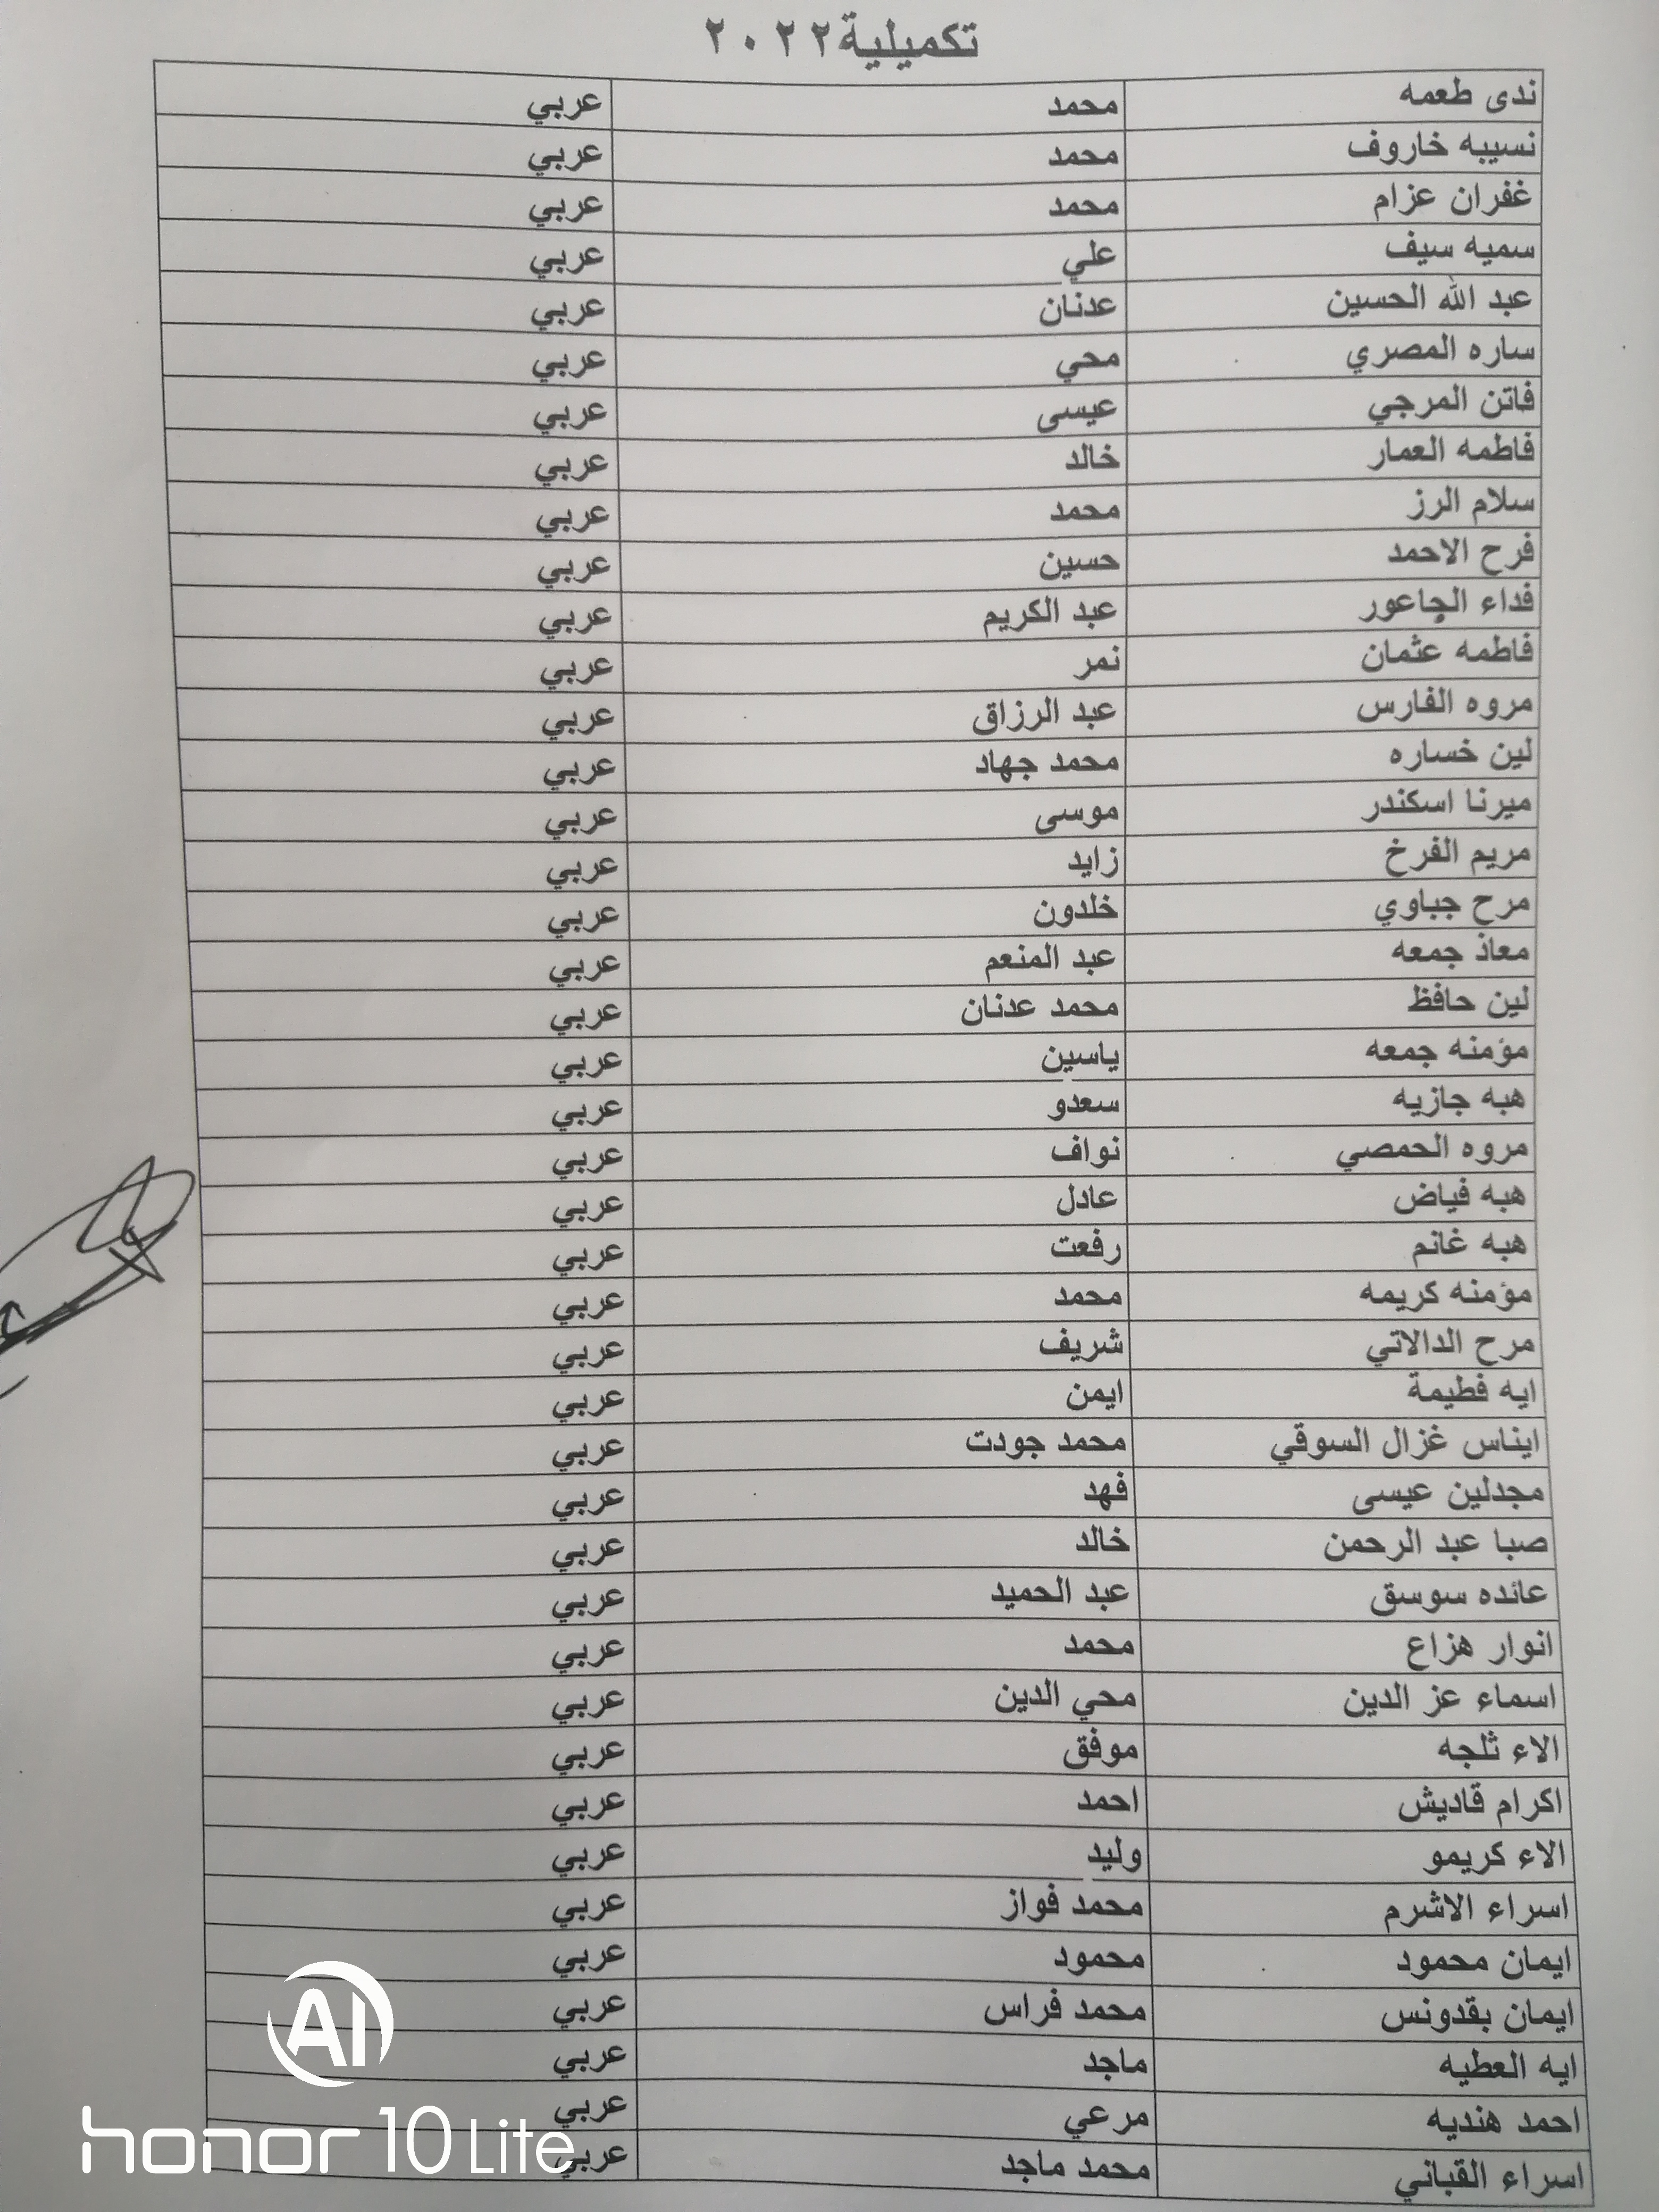 تكميلية٢٠٢٢
ندى طعمه محمد عربي
نسيبه خاروف محمد عربي
غفران عزام محمد عربي
سميه سيف علي عربي
عبد الله الحسين عدنان عربي
ساره المصري محي عربي
فاتن المرجي عيسى عربي
فاطمه العمار خالد عربي
سلام الرز محمد عربي
فرح الاحمد حسين عربي
فداء الجاعور عبد الكريم عربي
فاطمه عثمان نمر عربي
مروه الفارس عبد الرزاق عربي
لين خساره محمد جهاد عربي
ميرنا اسكندر موسى عربي
مريم الفرخ زايد عربي
مرح جباوي خلدون عربي
معاذ جمعه عبد المنعم عربي
لين حافظ محمد عدنان عربي
مؤمنه جمعه ياسين عربي
هبه جازيه سعدو عربي
مروه الحمصي نواف عربي
هبه فياض عادل عربي
هبه غانم رفعت عربي
مؤمنه كريمه محمد عربي
مرح الدالاتي شريف عربي
ايه فطيمة ايمن عربي
ايناس غزال السوقي محمد جودت عربي
مجدلين عيسى فهد عربي
صبا عبد الرحمن خالد عربي
عائده سوسق عبد الحميد عربي
انوار هزاع محمد عربي
اسماء عز الدين محي الدين عربي
الاء ثلجه موفق عربي
اكرام قاديش احمد عربي
الاء كريمو وليد عربي
اسراء الاشرم محمد فواز عربي
ايمان محمود محمود عربي
ايمان بقدونس محمد فراس عربي
ايه العطيه ماجد عربي
احمد هنديه مرعي عربي
اسراء القباني محمد ماجد عربي
AI
honor 10 Lite